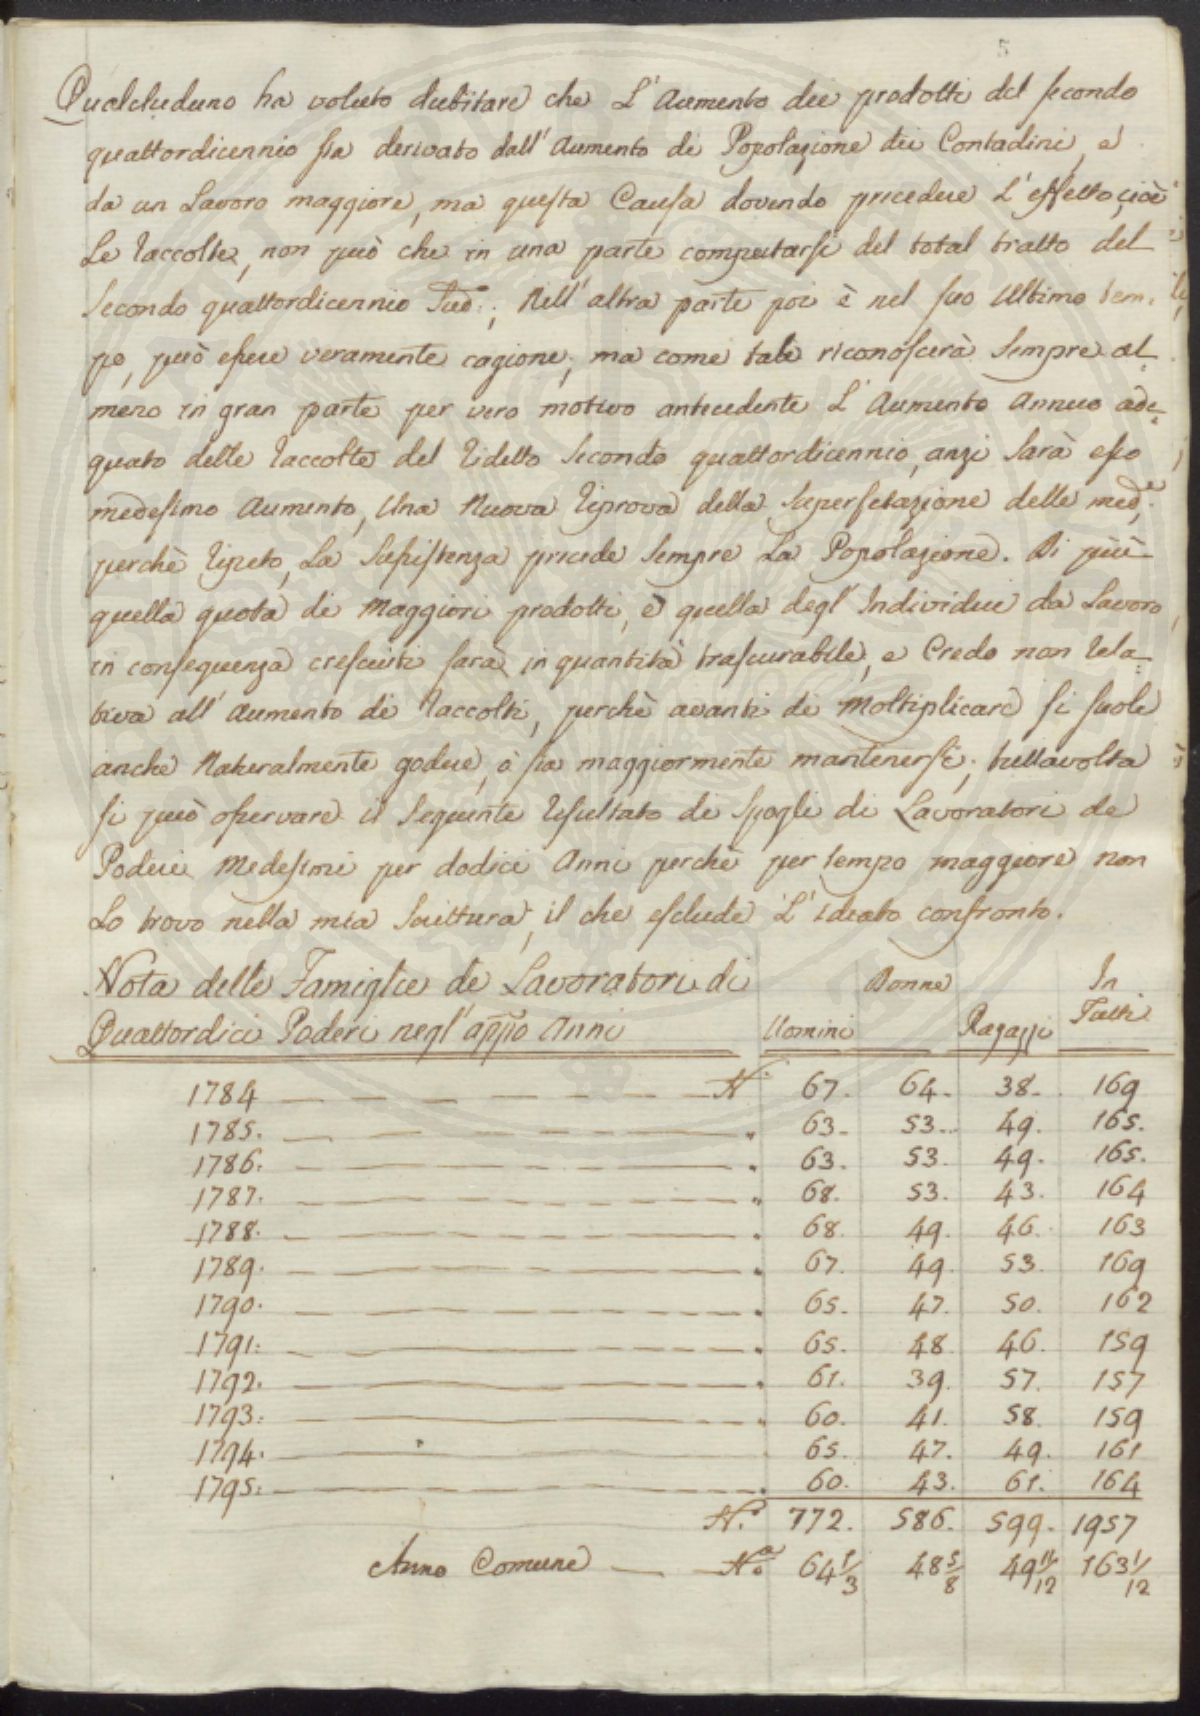 5
Qualcheduno ha voluto dubitare che L'Aumento dei prodotti del secondo
quattordicennio sia derivato dall'Aumento di Popolazione dei Contadini, e
da un Lavoro maggiore, ma questa Causa dovendo precedere L'effetto, cioè
Le raccolte, non può che in una parte computarsi del total tratto del
Secondo quattordicennio Sud.º; Nell'altra parte poi è nel suo Ultimo tem-
po, può essere veramente cagione, ma come tale riconoscerà Sempre al-
meno in gran parte per vero motivo antecedente L'Aumento Annuo ade-
quato delle raccolte del ridetto Secondo quattordicennio, anzi Sarà esso
medesimo Aumento, Una Nuova riprova della Superfetazione delle med.e,
perchè ripeto, La Sussistenza precede Sempre La Popolazione. Di più
quella quota di Maggiori prodotti, è quella degl'Individui da Lavoro,
in conseguenza cresciuti sarà in quantità trascurabile, e Credo non rela-
tiva all'Aumento di raccolti, perchè avanti di Moltiplicare si suole
anche Naturalmente godere, o sia maggiormente mantenersi; tuttavolta
si può osservare il Seguente resultato di Spogli di Lavoratori de
Poderi Medesimi per dodici Anni perchè per tempo maggiore non
Lo trovo nella mia Scrittura, il che esclude L'ideato confronto.
Nota delle Famiglie de Lavoratori di Quattordici Poderi negl'app.o Anni Uomini Donne Ragazzi In Tutti
1784 N.º 67. 64. 38. 169
1785. " 63. 53. 49. 165.
1786. " 63. 53. 49. 165.
1787. " 68. 53. 43. 164
1788. " 68. 49. 46. 163
1789. " 67. 49. 53. 169
1790. " 65. 47. 50. 162
1791. " 65. 48. 46. 159
1792. " 61. 39. 57. 157
1793. " 60. 41. 58. 159
1794. 65. 47. 49. 161
1795. " 60. 43. 61. 164
N.º 772. 586. 599. 1957
Anno Comune N.º 64 1/3 48 5/8 49 11/12 163 1/12